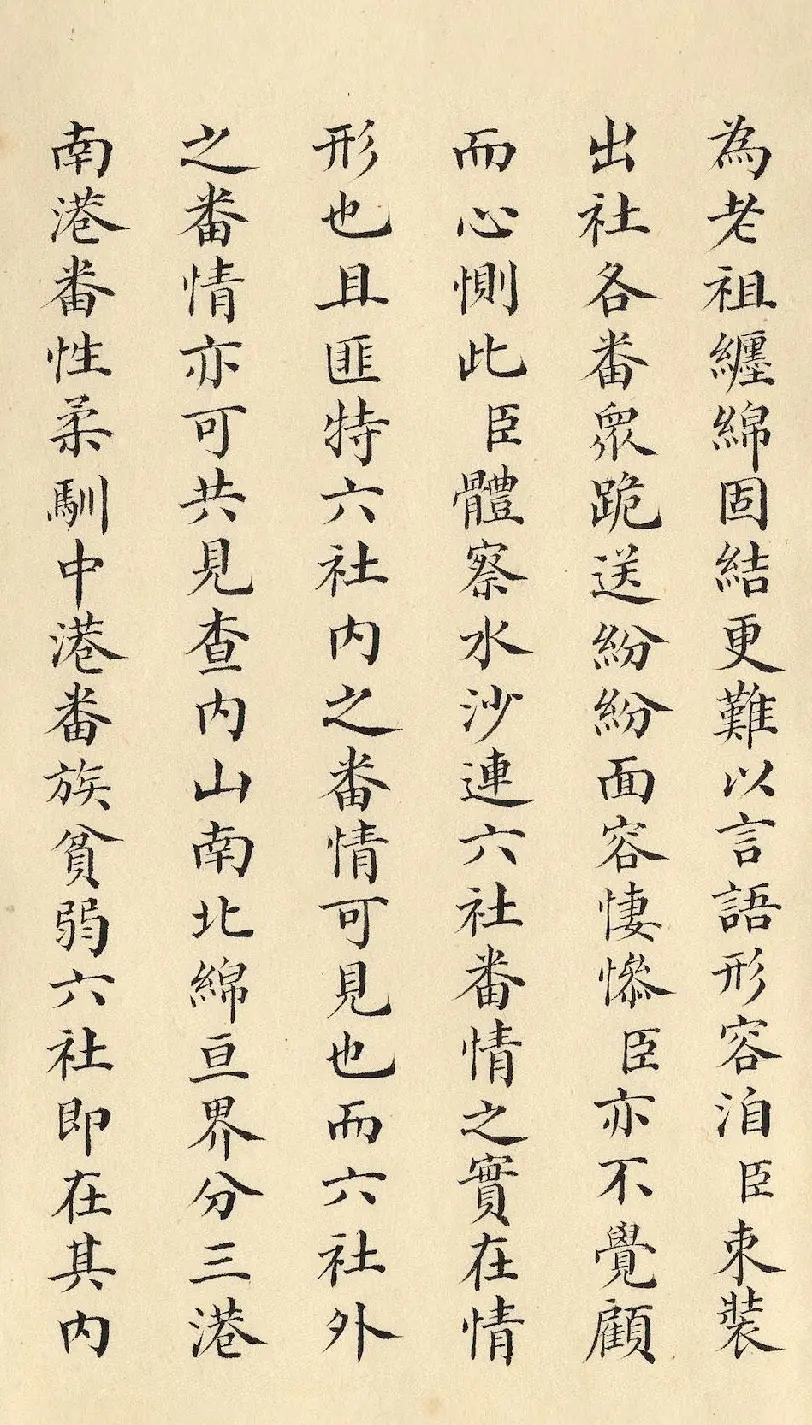 為老祖纏綿固結更難以言語形容洎臣束裝
出社各番眾跪送紛紛面容悽慘臣亦不覺顧
而心惻此臣體察水沙連六社番情之實在情
形也且匪特六社內之番情可見也而六社外
之番情亦可共見查內山南北綿亘界分三港
南港番性柔馴中港番族貧弱六社即在其內